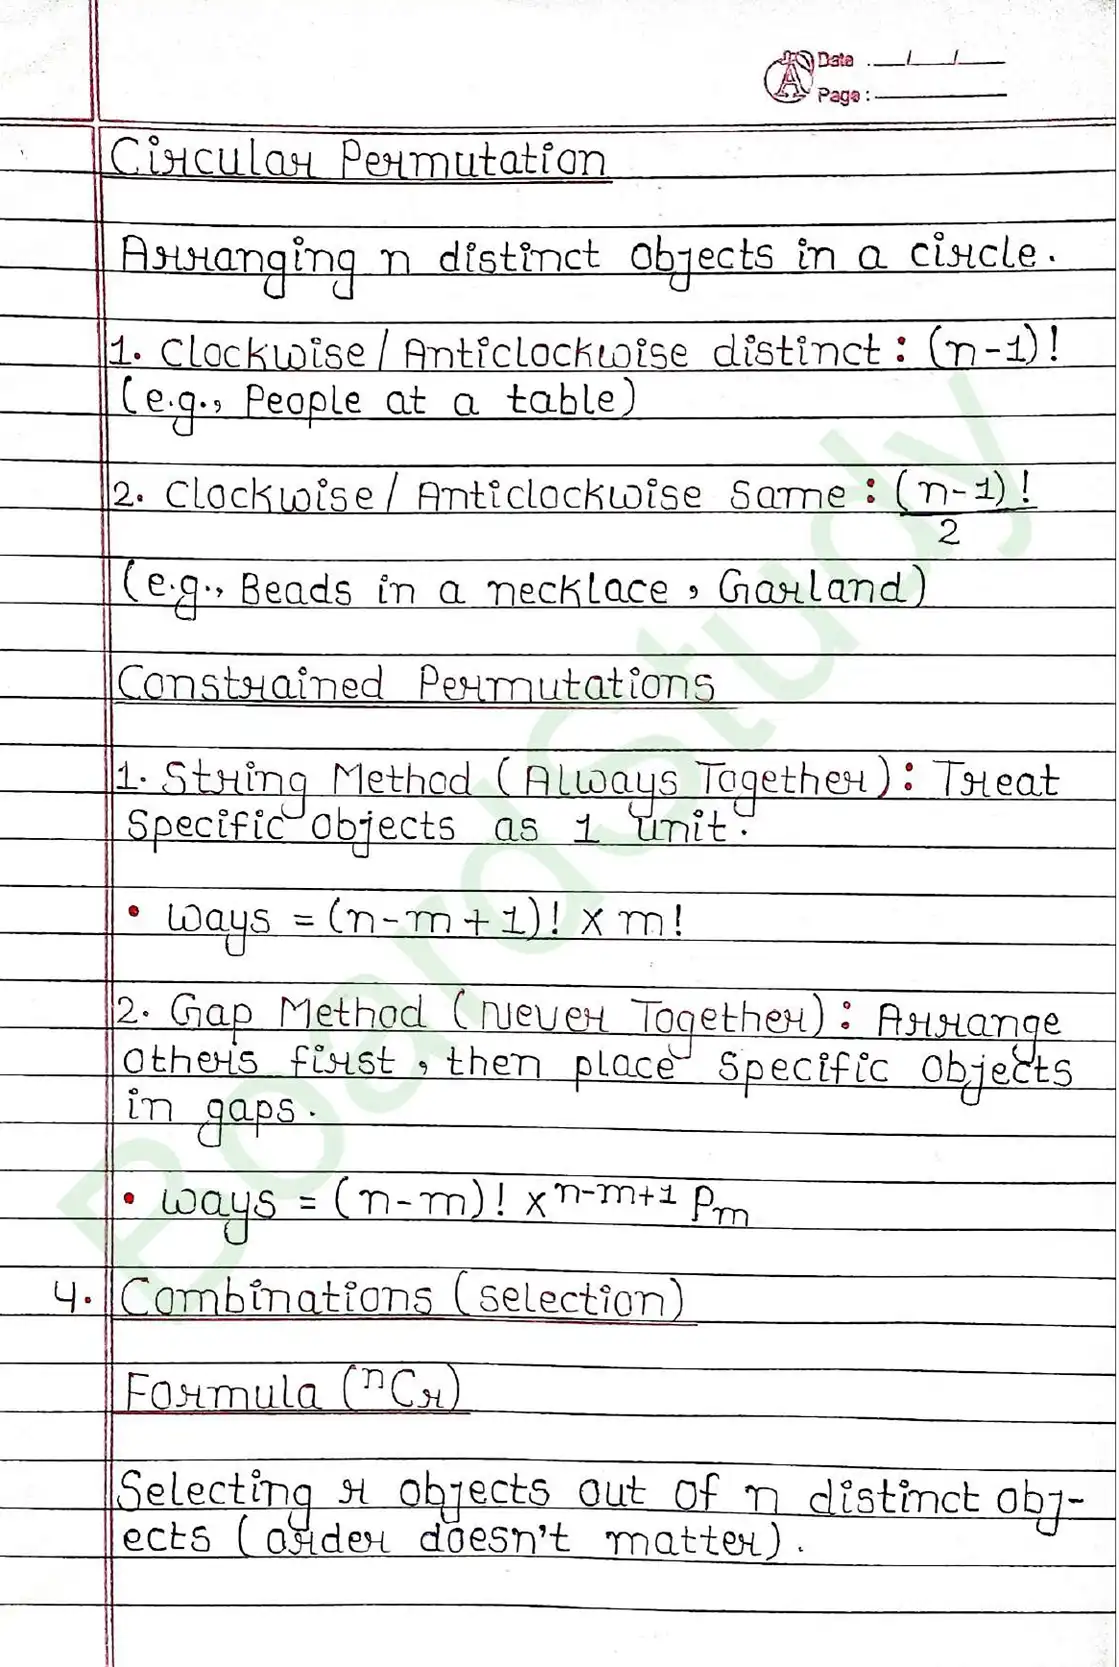 Date : __/__/__
Page :
Circular Permutation
Arranging n distinct objects in a circle.
1. Clockwise / Anticlockwise distinct : (n-1)!
(e.g., People at a table)
2. Clockwise / Anticlockwise Same : (n-1)!/2
(e.g., Beads in a necklace, Garland)
Constrained Permutations
1. String Method (Always Together) : Treat
Specific objects as 1 unit.
• ways = (n-m+1)! × m!
2. Gap Method (Never Together) : Arrange
others first, then place Specific Objects
in gaps.
• ways = (n-m)! × ⁿ⁻ᵐ⁺¹Pₘ
4. Combinations (selection)
Formula (ⁿCᵣ)
Selecting r objects out of n distinct obj-
ects (order doesn't matter).
BoardStudy